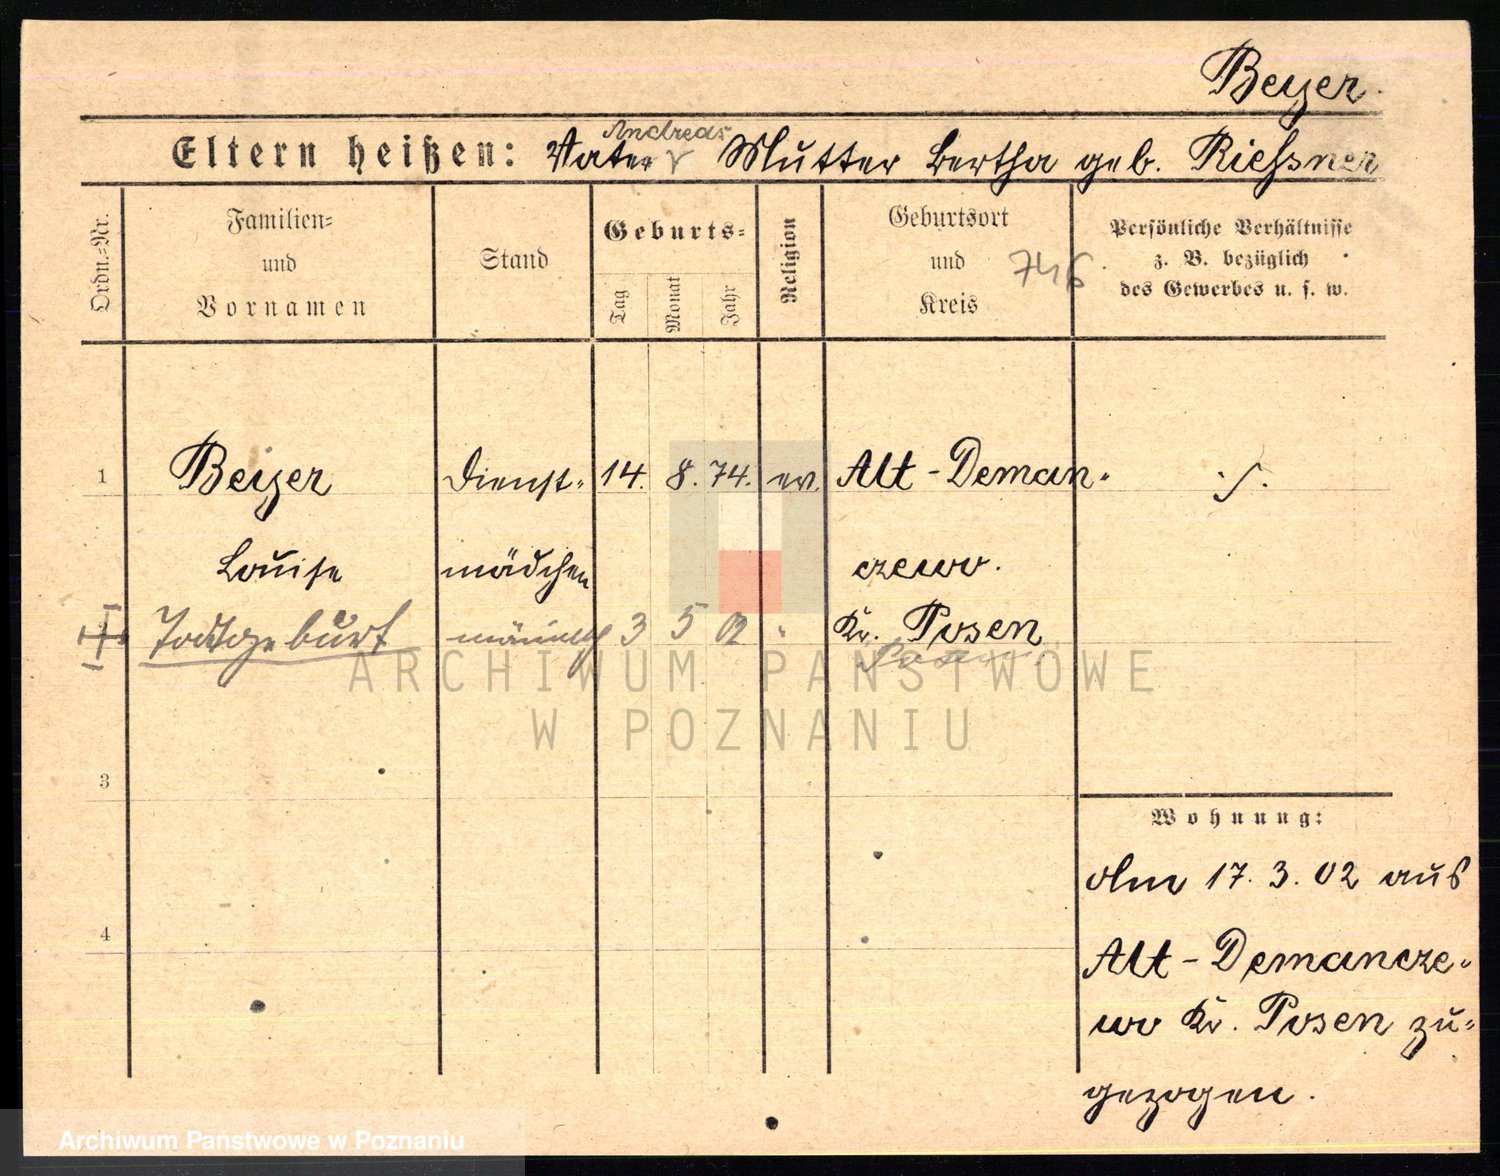 Beyer.
Eltern heißen: Vater Andreas Mutter Bertha geb. Riessner
Ordn.-Nr.
Familien-
und
Vornamen
Stand
Geburts-
Tag
Monat
Jahr
Religion
Geburtsort
und
Kreis
746
Persönliche Verhältnisse
z. B. bezüglich
des Gewerbes u. s. w.
1 Beyer Dienst- 14. 8. 74. ev. Alt-Deman- ./.
Louise mädchen czewo.
Kr. Posen
Todtgeburt männlich 3 5 02 " Posen
3
4
Wohnung:
Am 17. 3. 02 aus
Alt-Demancze-
wo Kr. Posen zu-
gezogen.
ARCHIWUM PAŃSTWOWE
W POZNANIU
Archiwum Państwowe w Poznaniu